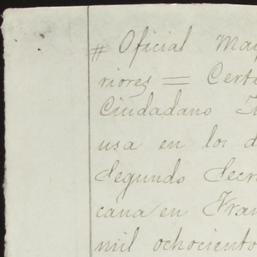 # Oficial May
riores = Cert
Ciudadano
usa en los d
Segundo Secr
cana en Fran
mil ochociento